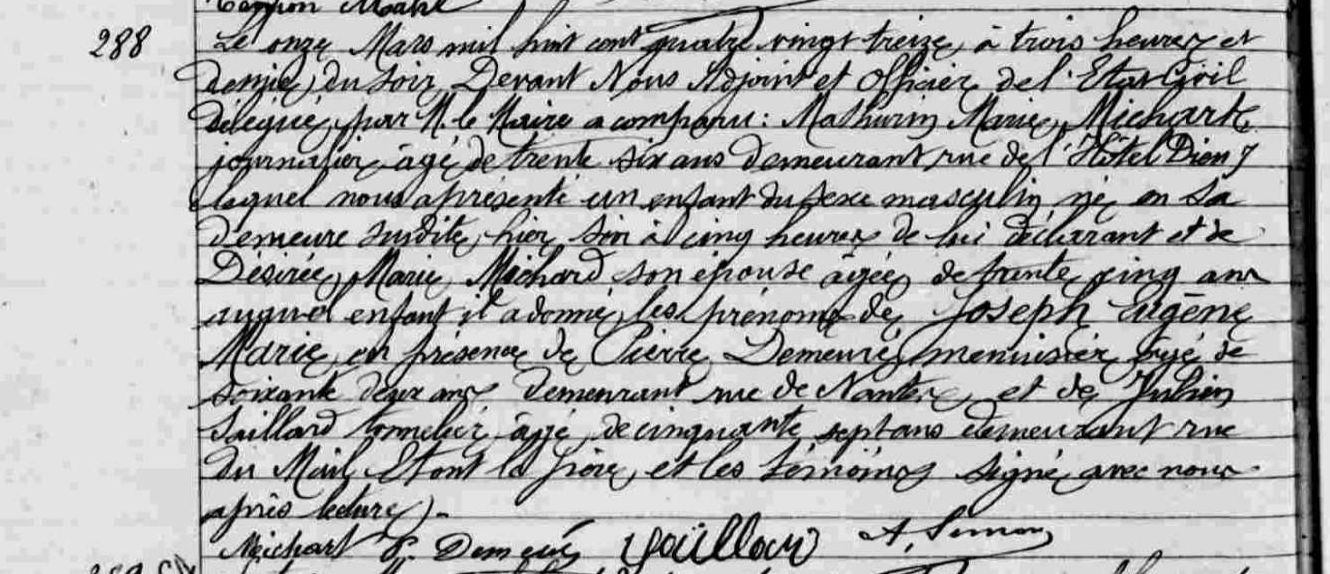 288
Le onze Mars mil huit cent quatre vingt treize, à trois heures et
demie, du soir, Devant Nous Adjoint et Officier de l'Etat Civil
Délégué, par M. le Maire a comparu : Mathurin Marie, Michart,
journalier, âgé de trente six ans demeurant rue de l'Hôtel Dieu 7
lequel nous a présenté un enfant du sexe masculin, né, en sa
demeure susdite, hier, soir à cinq heures de lui déclarant et de
Désirée, Marie, Michard, son épouse âgée, de trente, cinq ans
auquel enfant il a donné, les prénoms de, Joseph Eugène,
Marie, en présence de Pierre, Demeuré, menuisier, âgé de
soixante deux ans demeurant rue de Nantes, et de, Julien
Saillard tonnelier, âgé, de cinquante, sept ans demeurant rue
du Mail, Et ont le père, et les témoins signé avec nous
après lecture).
Michart P. Demeuré A. Simon